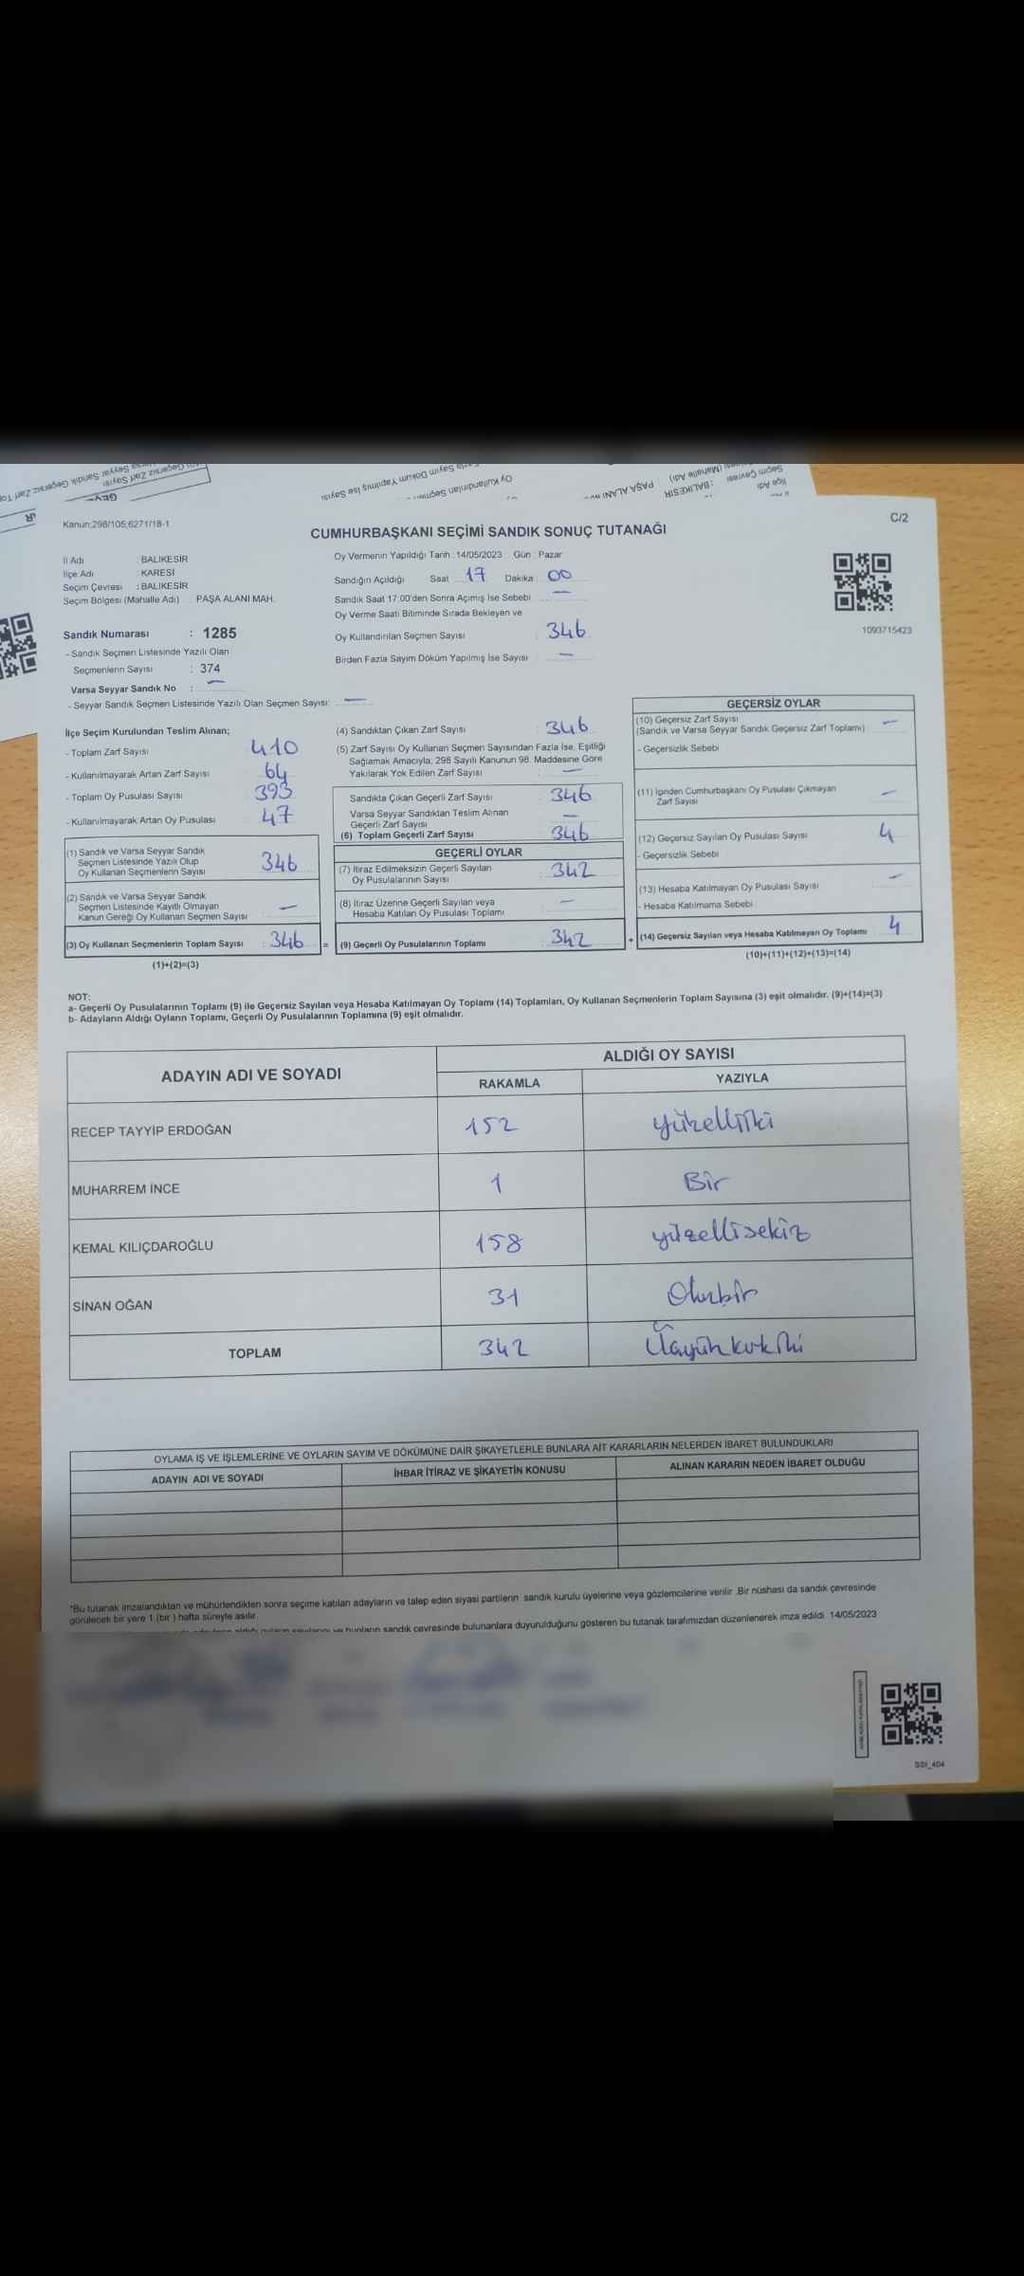 Kanun;298/105;6271/18-1
C/2
CUMHURBAŞKANI SEÇİMİ SANDIK SONUÇ TUTANAĞI
İl Adı : BALIKESİR
İlçe Adı : KARESİ
Seçim Çevresi : BALIKESİR
Seçim Bölgesi (Mahalle Adı) PAŞA ALANI MAH.
Sandık Numarası : 1285
- Sandık Seçmen Listesinde Yazılı Olan
Seçmenlerin Sayısı : 374
Varsa Seyyar Sandık No : —
- Seyyar Sandık Seçmen Listesinde Yazılı Olan Seçmen Sayısı: —
Oy Vermenin Yapıldığı Tarih :14/05/2023 Gün : Pazar
Sandığın Açıldığı Saat 17 Dakika 00
Sandık Saat 17:00'den Sonra Açımış İse Sebebi —
Oy Verme Saati Bitiminde Sırada Bekleyen ve
Oy Kullandırılan Seçmen Sayısı 346
Birden Fazla Sayım Döküm Yapılmış İse Sayısı —
1093715423
İlçe Seçim Kurulundan Teslim Alınan;
- Toplam Zarf Sayısı 410
- Kullanılmayarak Artan Zarf Sayısı 64
- Toplam Oy Pusulası Sayısı 393
- Kullanılmayarak Artan Oy Pusulası 47
(1) Sandık ve Varsa Seyyar Sandık
Seçmen Listesinde Yazılı Olup
Oy Kullanan Seçmenlerin Sayısı 346
(2) Sandık ve Varsa Seyyar Sandık
Seçmen Listesinde Kayıtlı Olmayan
Kanun Gereği Oy Kullanan Seçmen Sayısı —
(3) Oy Kullanan Seçmenlerin Toplam Sayısı 346 =
(1)+(2)=(3)
(4) Sandıktan Çıkan Zarf Sayısı : 346
(5) Zarf Sayısı Oy Kullanan Seçmen Sayısından Fazla İse, Eşitliği
Sağlamak Amacıyla, 298 Sayılı Kanunun 98. Maddesine Göre
Yakılarak Yok Edilen Zarf Sayısı —
Sandıkta Çıkan Geçerli Zarf Sayısı 346
Varsa Seyyar Sandıktan Teslim Alınan
Geçerli Zarf Sayısı —
(6) Toplam Geçerli Zarf Sayısı 346
GEÇERLİ OYLAR
(7) İtiraz Edilmeksizin Geçerli Sayılan
Oy Pusulalarının Sayısı 342
(8) İtiraz Üzerine Geçerli Sayılan veya
Hesaba Katılan Oy Pusulası Toplamı —
(9) Geçerli Oy Pusulalarının Toplamı 342 +
GEÇERSİZ OYLAR
(10) Geçersiz Zarf Sayısı
(Sandık ve Varsa Seyyar Sandık Geçersiz Zarf Toplamı) —
- Geçersizlik Sebebi
(11) İçinden Cumhurbaşkanı Oy Pusulası Çıkmayan
Zarf Sayısı —
(12) Geçersiz Sayılan Oy Pusulası Sayısı 4
- Geçersizlik Sebebi
(13) Hesaba Katılmayan Oy Pusulası Sayısı —
- Hesaba Katılmama Sebebi
(14) Geçersiz Sayılan veya Hesaba Katılmayan Oy Toplamı 4
(10)+(11)+(12)+(13)=(14)
NOT:
a- Geçerli Oy Pusulalarının Toplamı (9) ile Geçersiz Sayılan veya Hesaba Katılmayan Oy Toplamı (14) Toplamları, Oy Kullanan Seçmenlerin Toplam Sayısına (3) eşit olmalıdır. (9)+(14)=(3)
b- Adayların Aldığı Oyların Toplamı, Geçerli Oy Pusulalarının Toplamına (9) eşit olmalıdır.
ADAYIN ADI VE SOYADI
ALDIĞI OY SAYISI
RAKAMLA YAZIYLA
RECEP TAYYİP ERDOĞAN 152 yüzelliiki
MUHARREM İNCE 1 Bir
KEMAL KILIÇDAROĞLU 158 yüzellisekiz
SİNAN OĞAN 31 Otuzbir
TOPLAM 342
OYLAMA İŞ VE İŞLEMLERİNE VE OYLARIN SAYIM VE DÖKÜMÜNE DAİR ŞİKAYETLERLE BUNLARA AİT KARARLARIN NELERDEN İBARET BULUNDUKLARI
ADAYIN ADI VE SOYADI İHBAR İTİRAZ VE ŞİKAYETİN KONUSU ALINAN KARARIN NEDEN İBARET OLDUĞU
*Bu tutanak imzalandıktan ve mühürlendikten sonra seçime katılan adayların ve talep eden siyasi partilerin sandık kurulu üyelerine veya gözlemcilerine verilir. Bir nüshası da sandık çevresinde
görülecek bir yere 1 (bir ) hafta süreyle asılır.
sandık çevresinde bulunanlara duyurulduğunu gösteren bu tutanak tarafımızdan düzenlenerek imza edildi. 14/05/2023
SSI_404